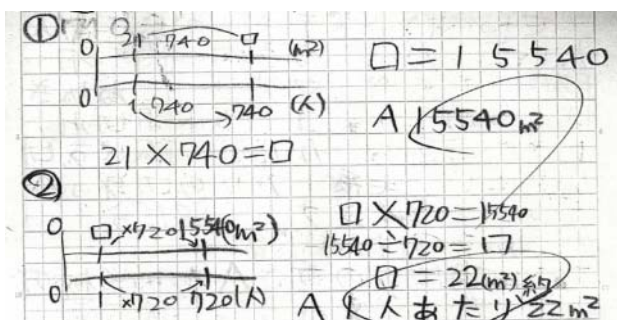 ①
0 21 740 □ (m²)
0 1 740 740 (人)
21×740=□
□=15540
A 15540m²
②
0 □ ×720 15540(m²)
0 1 ×720 720(人)
□×720=15540
15540÷720=□
□=22(m²)
A 1人あたり約22m²